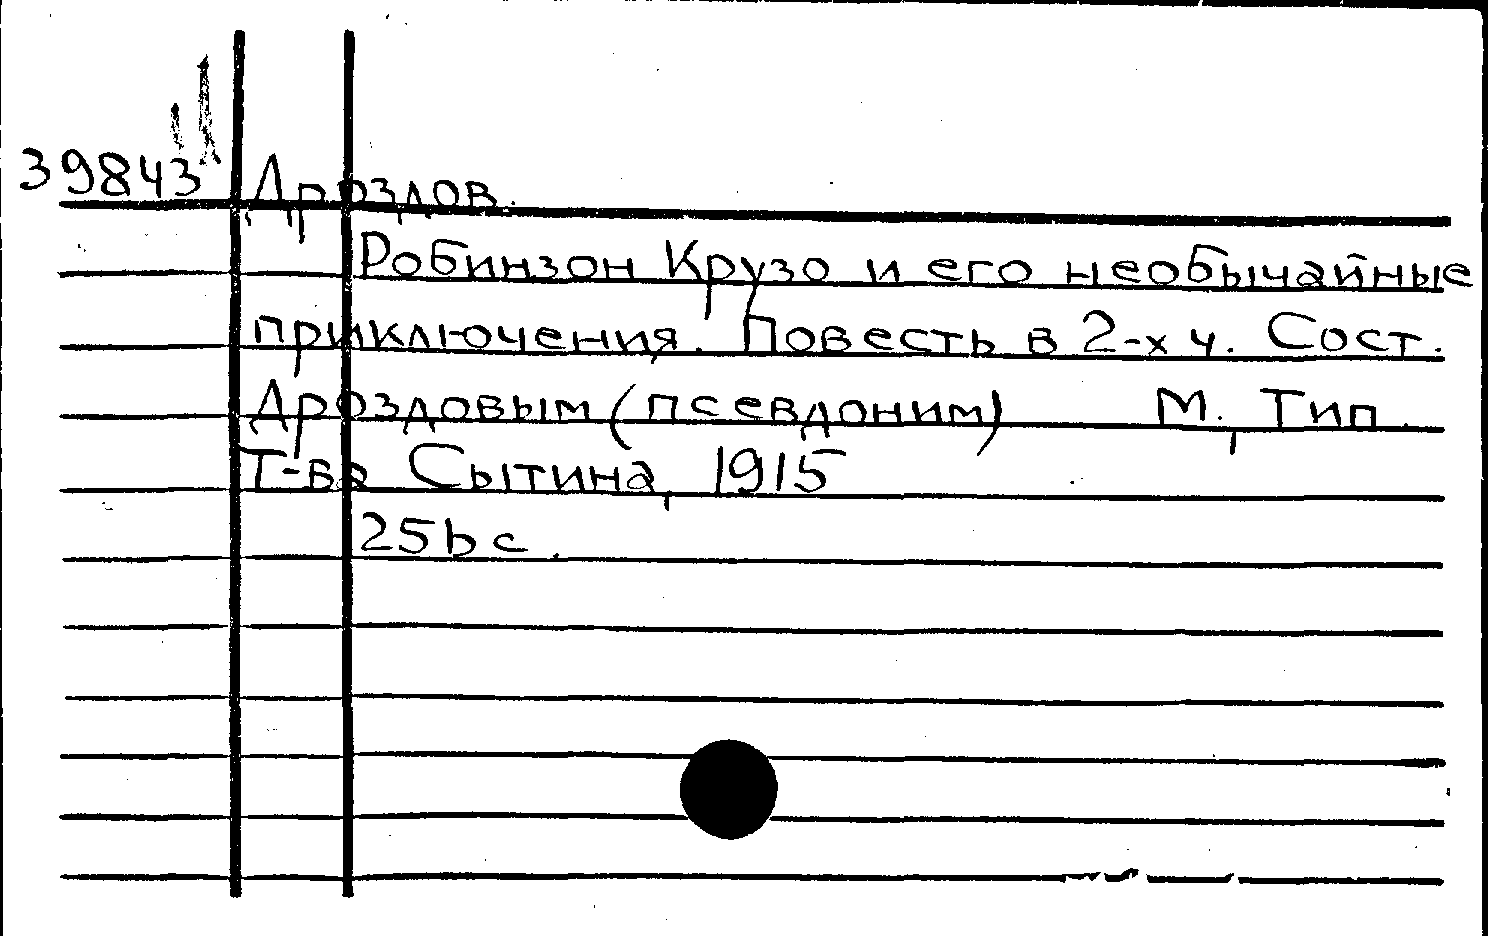 39843 Дроздов.
Робинзон Крузо и его необычайные
приключения. Повесть в 2-х ч. Сост.
Дроздовым (псевдоним) М., Тип.
Т-ва Сытина, 1915
256 с.